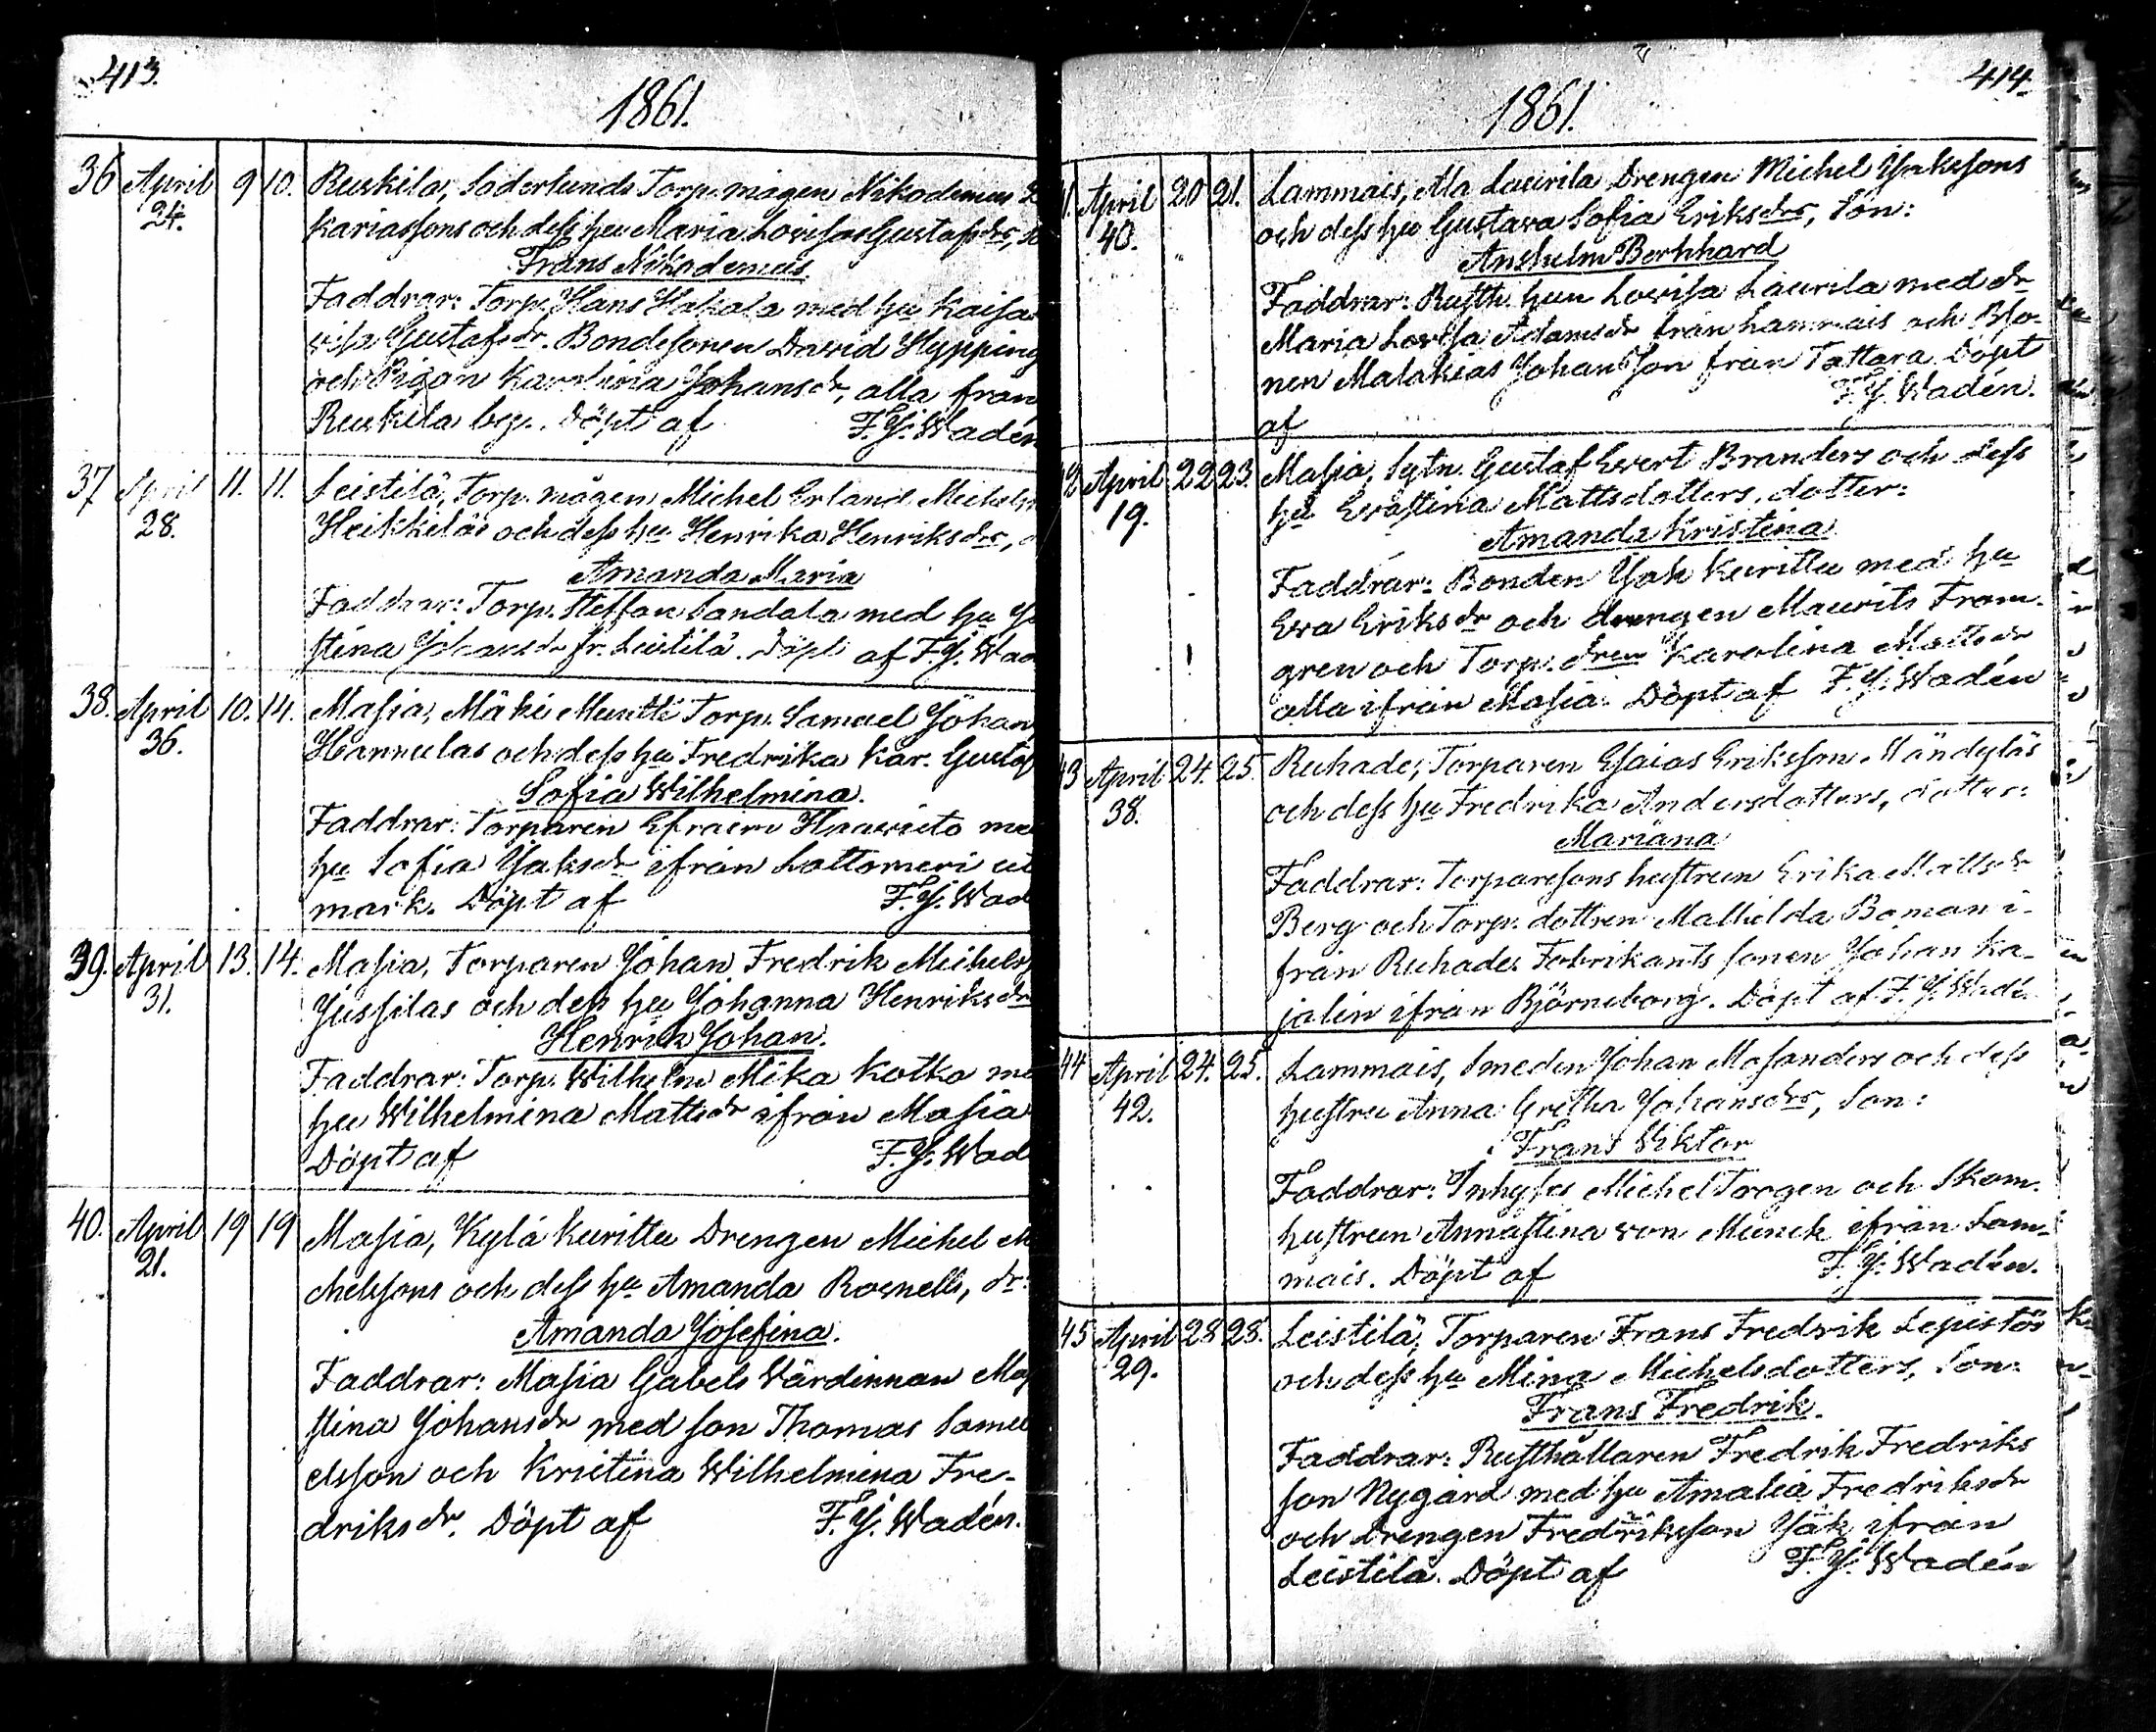 413.
1861.
36 April 9 10. Ruskila, Söderlunds Torp. mågen Nikodemus
24. kariassons och dess hu Maria Lovisa Gustafsdrs,
Frans Nikodemus.
Faddrar: Torp. Hans Hakala med hu Kaisa
visa Gustafsdr. Bondesonen David Hypping
och Pigan Karolina Johansdr, alla från
Ruskila by. Döpt af F. J. Wadén
37 April 11. 11. Leistilä, Torp. mågen Michel Erland Michels
28. Heikkiläs och dess hu Henrika Henriksdrs,
Amanda Maria
Faddrar: Torp. Steffan Sandala med hu
stina Johansdr fr. Leistilä. Döpt af F. J. Wad
38. April 10. 14. Masia, Mäki Muntti Torp. Samuel Johan
36. Hannulas och dess hu Fredrika Kar. Gustaf
Sofia Wilhelmina.
Faddrar: Torparen Efraim Haavisto me
hu Sofia Jaksdr ifrån Lattomeri ut
mark. Döpt af F. J. Wad
39. April 13. 14. Masia, Torparen Johan Fredrik Michels
31. Jussilas och dess hu Johanna Henriksdr
Henrik Johan.
Faddrar: Torp. Wilhelm Mika Kotka me
hu Wilhelmina Mattsdr ifrån Masia
Döpt af F. J. Wad
40. April 19 19 Masia, Kylä Kurittu Drengen Michel M
21. chelssons och dess hu Amanda Rosnells, dr:
Amanda Josefina.
Faddrar: Masia Gabels Värdinnan Maj
stina Johansdr med son Thomas Samu
elsson och Kristina Wilhelmina Fre-
driksdr. Döpt af F. J. Wadén.
414.
1861.
41. April 20 21. Lammais, Ala Laurila Drengen Michel Jakssons
40. och dess hu Gustava Sofia Eriksdrs, Son:
Anshelm Bernhard
Faddrar: Rusth. hun Lovisa Laurila med dr
Maria Lovisa Adamsdr från Lammais och Bso-
nen Malakias Johansson från Tattara. Döpt
af F. J. Wadén.
42 April 22 23. Masia, Sytn. Gustaf Evert Branders och dess
19. hu Evastina Mattsdotters, dotter:
Amanda Kristina
Faddrar: Bonden Jak Kurittu med hu
Eva Eriksdr och drengen Maurits From-
gren och Torp. dren Karolina Mattsdr
alla ifrån Masia. Döpt af F. J. Wadén
43 April 24. 25. Ruhade, Torparen Esaias Eriksson Mändyläs
38. och dess hu Fredrika Andersdotters, dotter:
Mariana
Faddrar: Torparesons hustrun Erika Mattsdr
Berg och Torp. dottren Mathilda Boman i-
från Ruhade. Fabrikants sonen Johan Ka-
jalin ifrån Björneborg. Döpt af F. J. Wadén
44 April 24. 25. Lammais, Smeden Johan Masanders och dess
42. hustru Anna Gretha Johansdrs, Son:
Frans Viktor
Faddrar: Inhyses Michel Trogen och Skom.
hustrun Annastina von Munck ifrån Lam-
mais. Döpt af F. J. Wadén.
45 April 28 28. Leistilä, Torparen Frans Fredrik Lepistös
29. och dess hu Mina Michelsdotters, Son:
Frans Fredrik.
Faddrar: Rusthållaren Fredrik Fredriks
son Nygård med hu Amalia Fredriksdr
och Drengen Fredriksson Jak ifrån
Leistilä. Döpt af F. J. Wadén